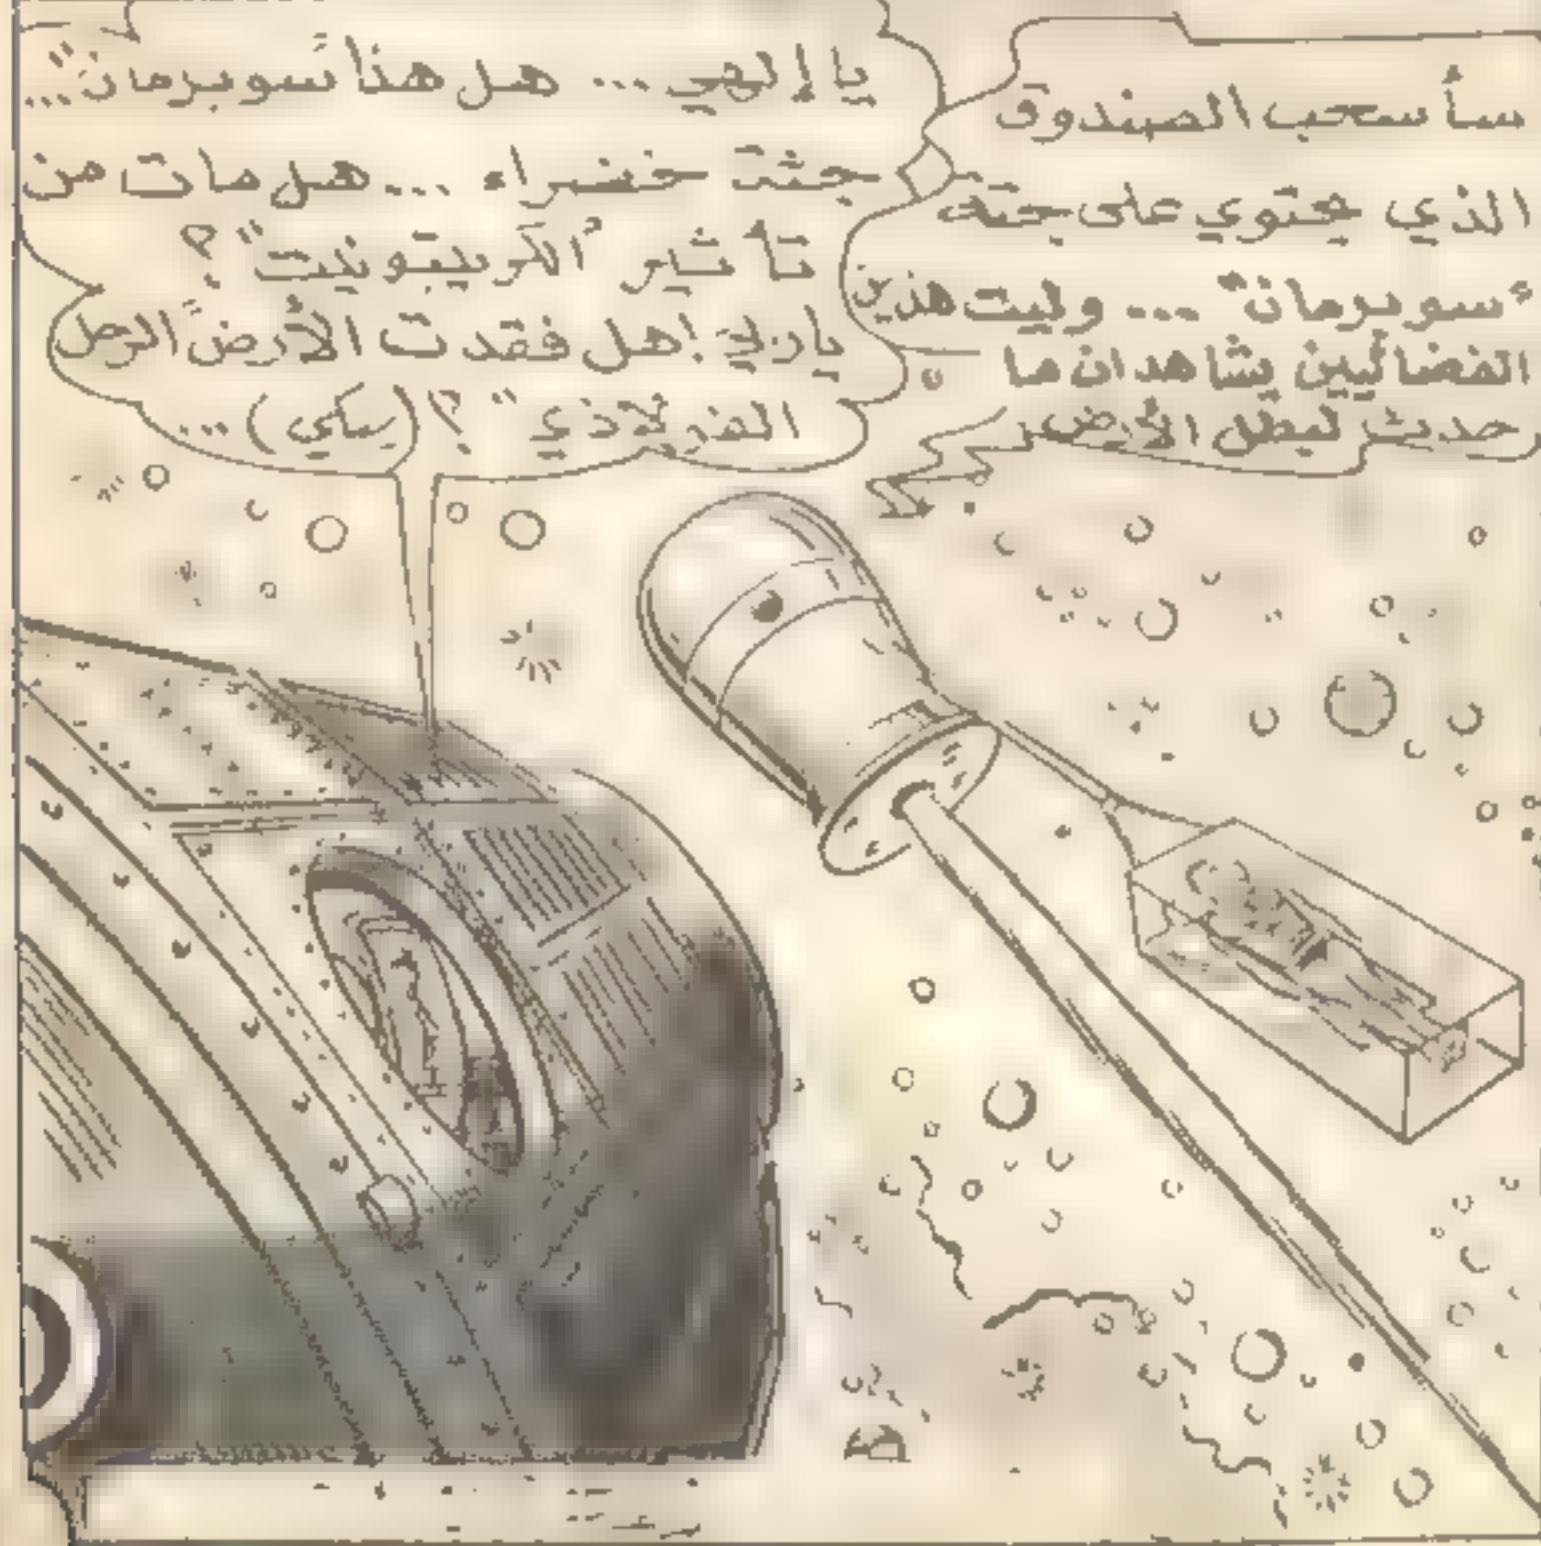 سأسحب الصندوق
الذي يحتوي على جثة
"سوبرمان" ... وليت هذين
الفضائيين يشاهدان ما
حدث لبطل الأرض
يا إلهي ... هل هذا "سوبرمان"...
جثة خضراء ... هل مات من
تأثير "الكريبتونيت"؟
ياربي! هل فقدت الأرض "الرجل
الفولاذي"؟ (يبكي) ...